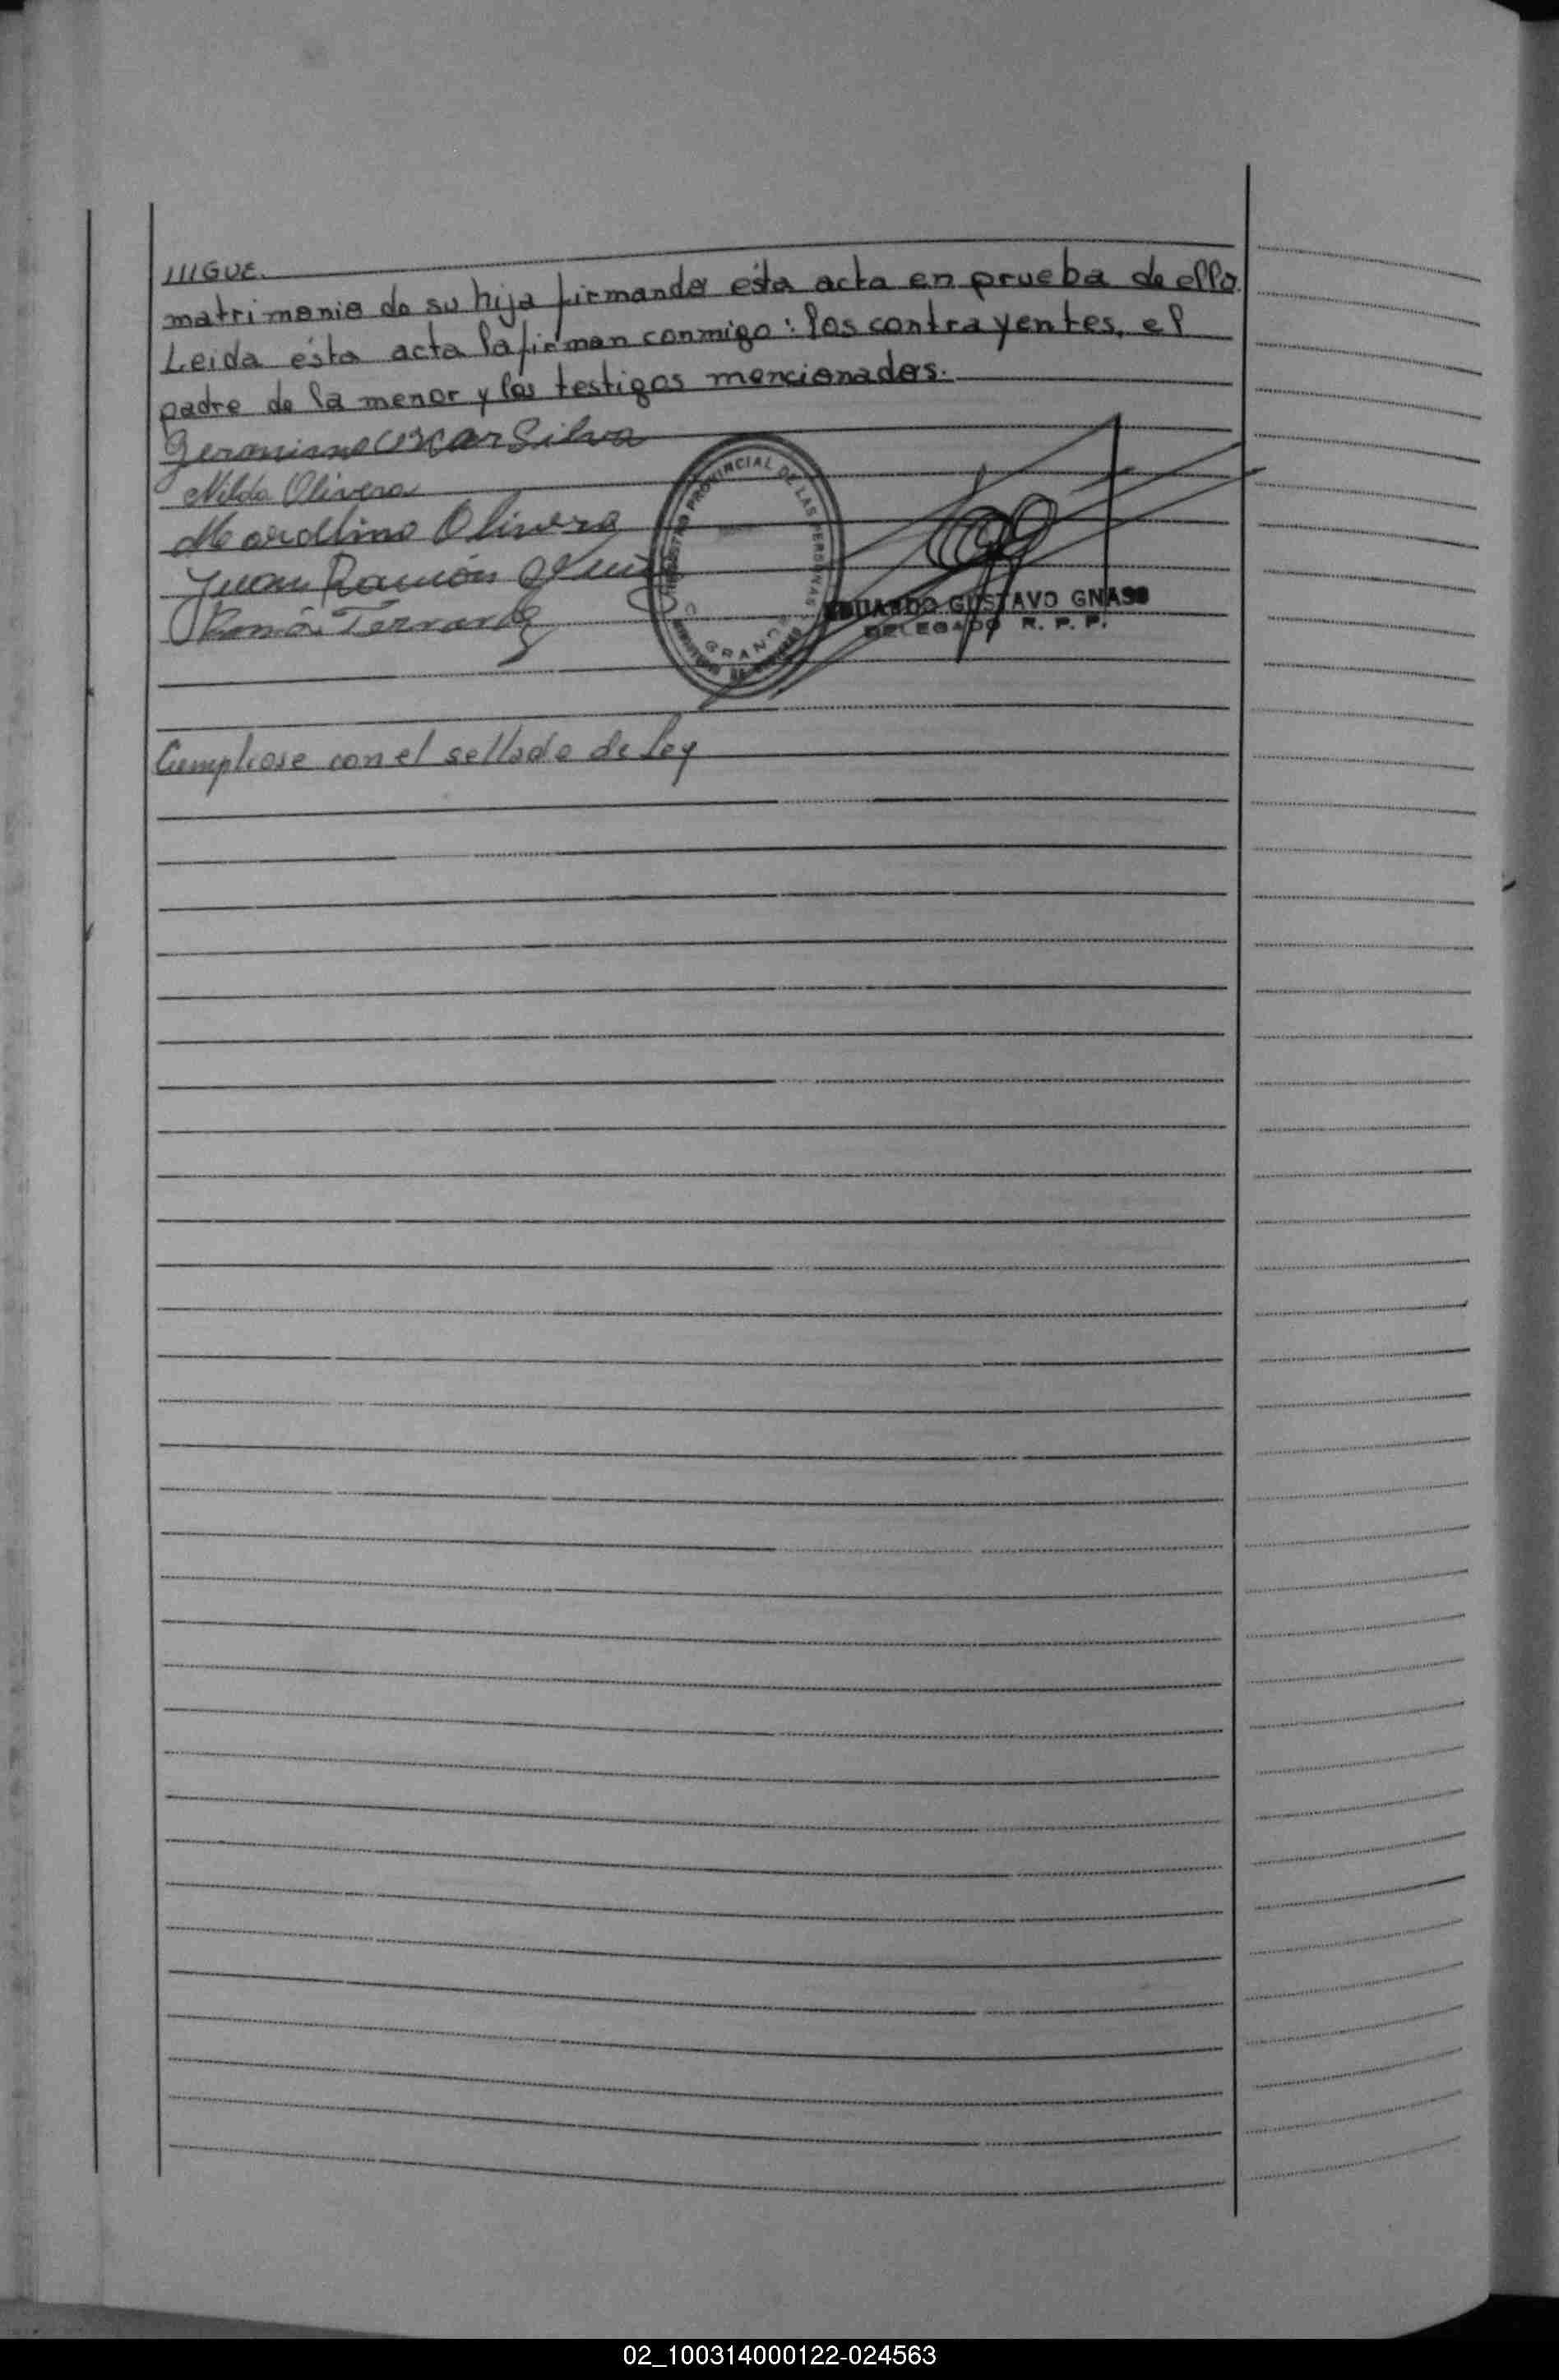 IIIGUE.
matrimonio de su hija firmando ésta acta en prueba de ello.
Leida ésta acta la firman conmigo: los contrayentes, el
padre de la menor y los testigos mencionados.
Geronimo Oscar Silva
Nilda Olivera
Marcelino Olivera
Juan Ramón
Ramón
REGISTRO PROVINCIAL DE LAS PERSONAS
GRANDE
EDUARDO GUSTAVO GNASS
DELEGADO R. P. P.
Cumpliose con el sellado de Ley
02_100314000122-024563